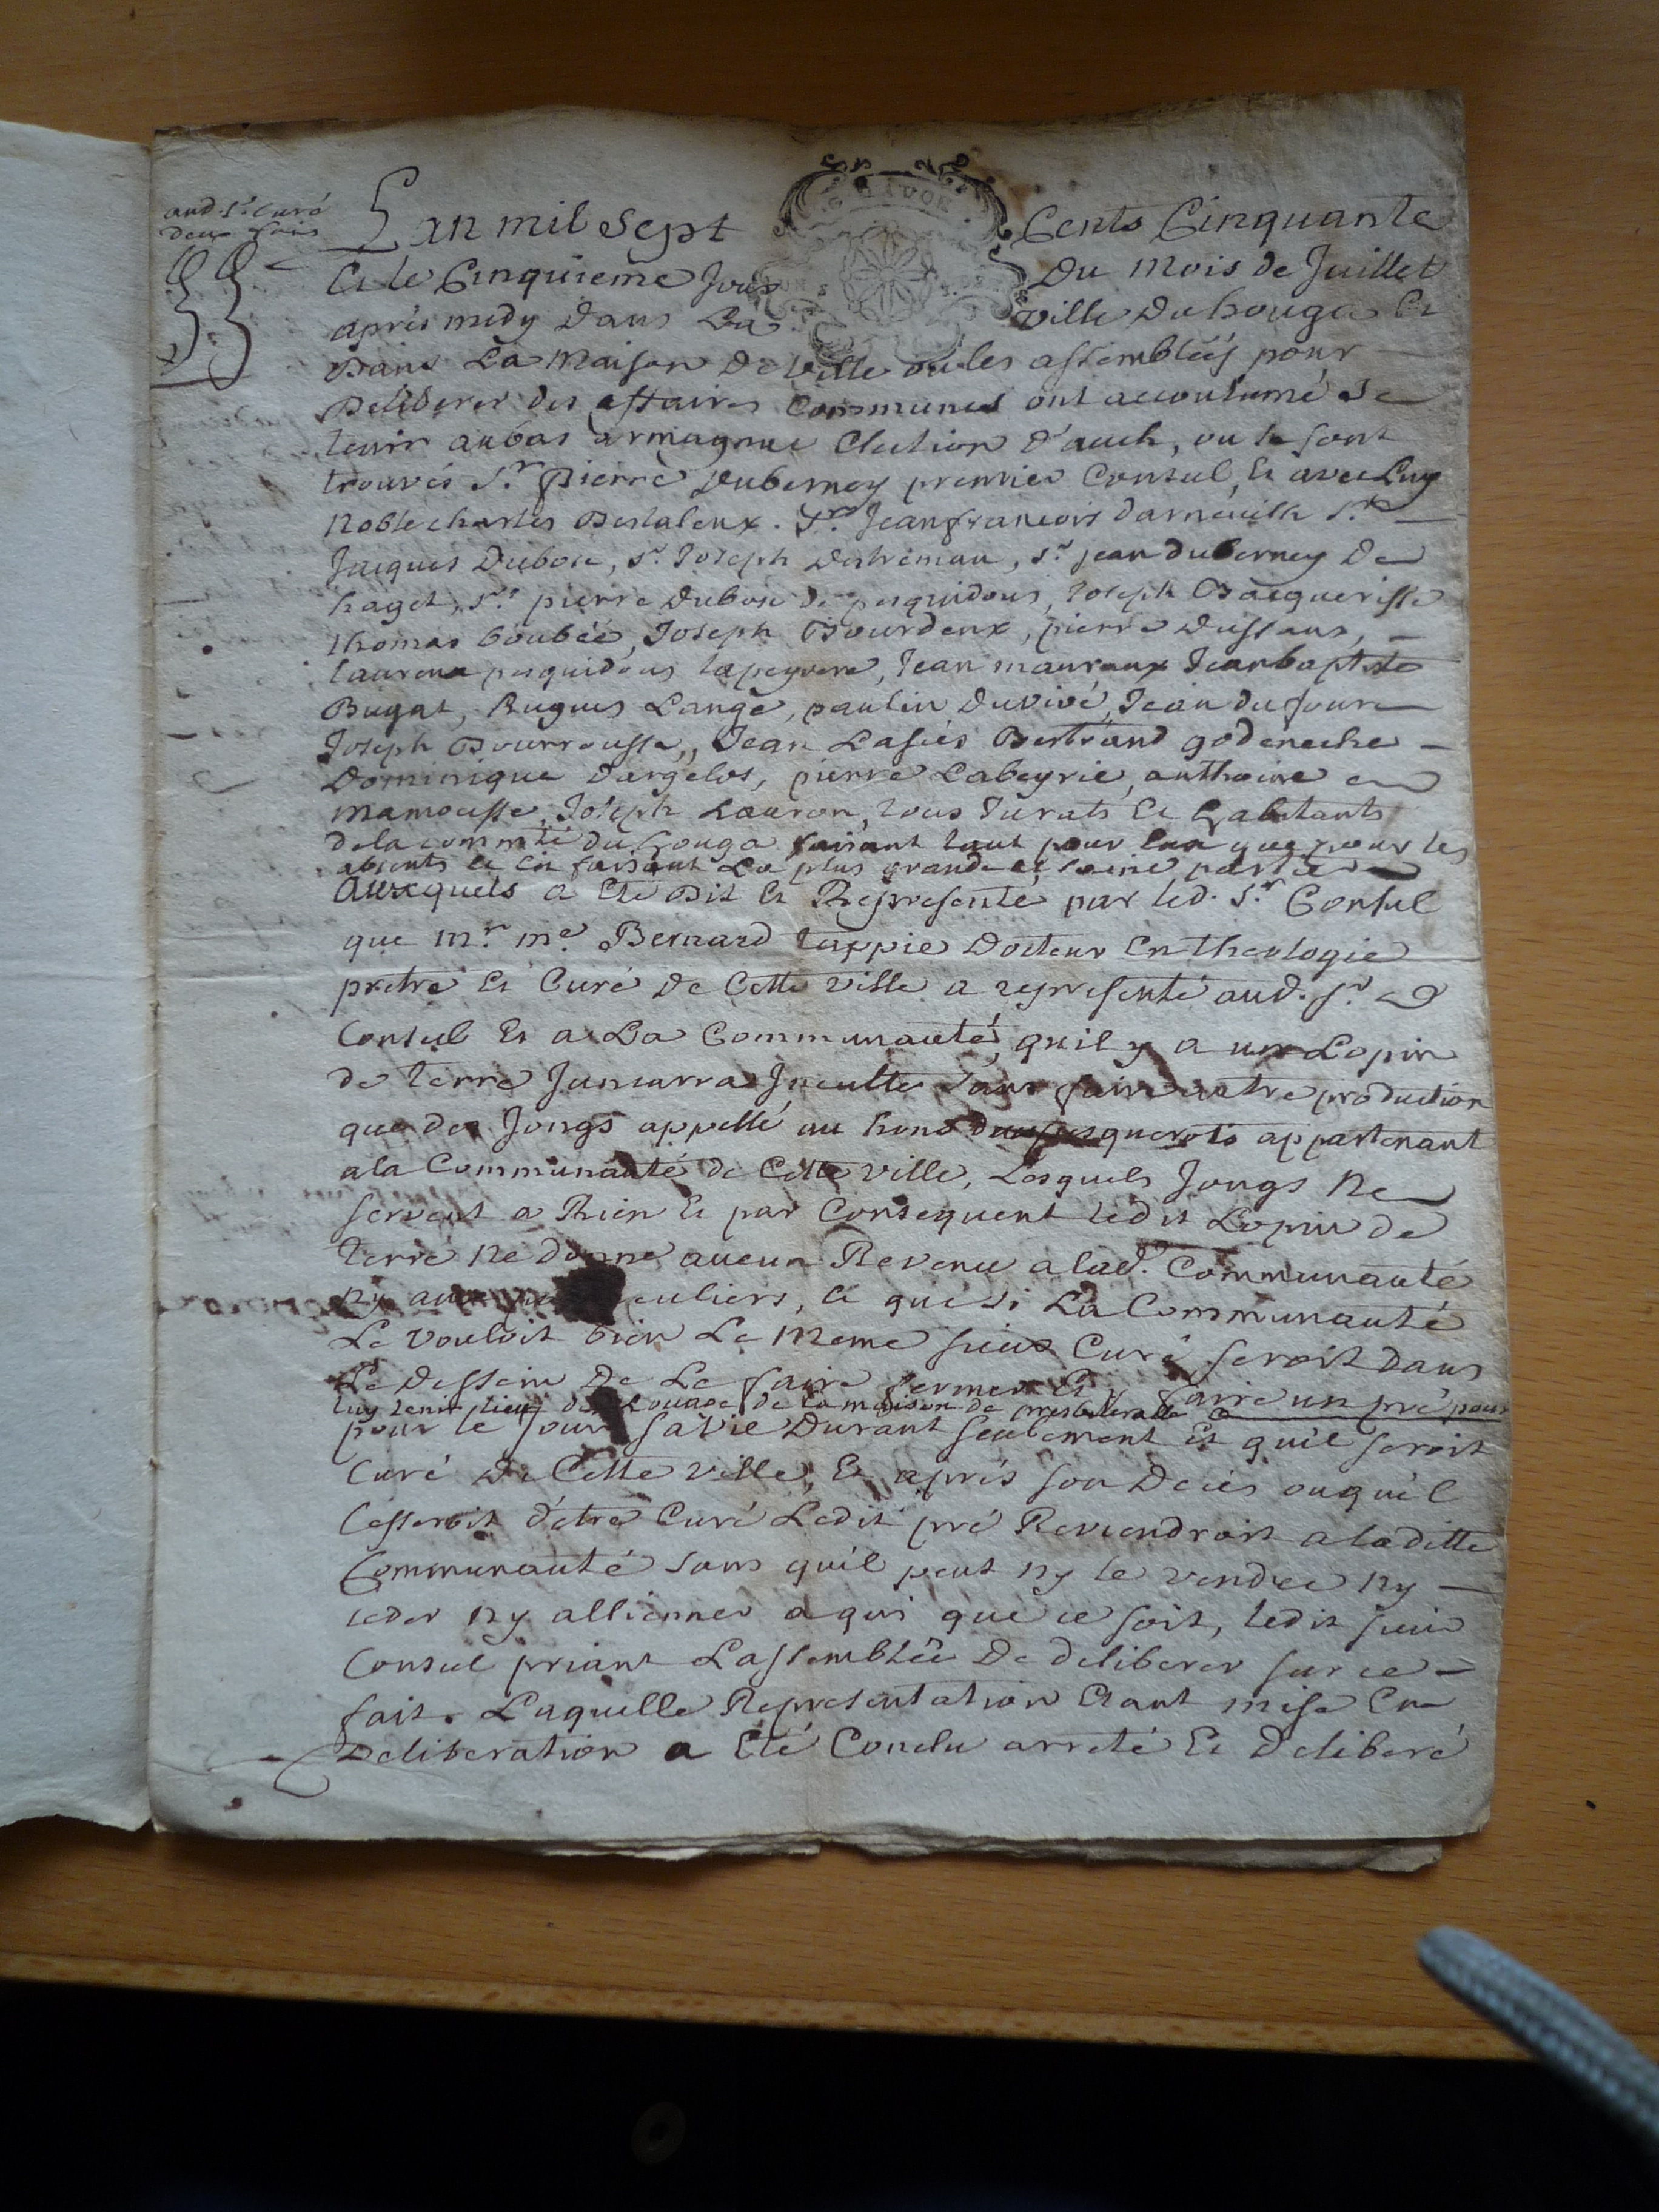 aud. sr. curé
deux fois
L'an mil sept Cents Cinquante
Et le Cinquieme Jour Du Mois de Juillet
apres midy dans La ville Du houga Et
Dans La Maison De Ville ou les assemblées pour
Deliberer des affaires Communes ont accoutumé se
tenir au bas armagnac Election d'auch, ou se sont
trouvés Sr. Pierre Duberney premier Consul, Et avec Luy
Noble charles Sr. Jean francois darneuilh Sr.
Jacques Dubosc, Sr. Joseph Destremau, Sr. jean duberney De
haget, Sr. pierre Dubosc de pesquidous, Joseph Bacquerisse
thomas boubée, Joseph Bourdeux, pierre Dussans,
laurens pesquidous lapeyrere, Jean mauraux Jean baptiste
Bugat, Lange, paulin Duvivé, Jean dufour
Joseph Bourrousse, Jean Lasies Bertrand godeneche
Dominique dargelos, pierre Labeyrie, anthoine
mamousse, Joseph Lauron, tous Jurats Et habitants
de la commté du houga faisant tant pour Eux que pour les
absents et En faisant La plus grande et saine partie
Auxquels a Eté Dit Et Representé par led. Sr. Consul
que Mr. Me. Bernard tappie Docteur En theologie
pretre Et Curé De Cette ville a representé aud. Sr.
Consul Et a La Communauté, quil y a un Lopin
de terre Juncarra Inculte sans faire autre production
que des Jongs appellé au hond appartenant
a la Communauté de Cette ville, Lesquels Jongs Ne
servent a Rien Et par Consequent ledit Lopin de
terre Ne donne aucun Revenu a lad. Communauté
Ny aux culiers, Et que si La Communauté
Le vouloit bien Le Meme sieur Curé seroit Dans
Le Dessein De Le faire fermer Et y faire un pré pour
luy tenir lieu du Louage de la maison de presbiteralle
pour le jour sa vie Durant seulement Et qu'il seroit
Curé De Cette ville, Et aprés son Decés ou qu'il
Cesseroit d'etre Curé Ledit pré Reviendroit a laditte
Communauté sans qu'il peut Ny le vendre Ny
ceder Ny allienner a qui que ce soit, ledit sieur
Consul priant L'assemblée De deliberer sur ce
fait. Laquelle Representation Etant mise En
Deliberation a Eté Conclu arreté Et Deliberé